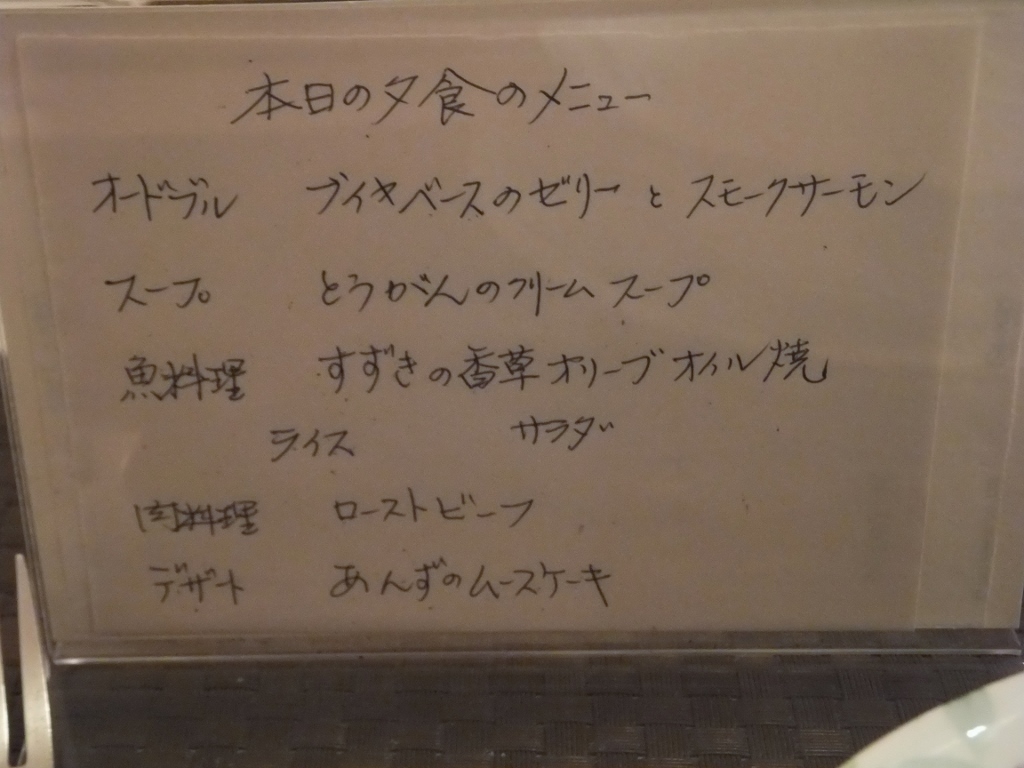 本日の夕食のメニュー
オードブル ブイヤベースのゼリーとスモークサーモン
スープ とうがんのクリームスープ
魚料理 すずきの香草オリーブオイル焼
ライス サラダ
肉料理 ローストビーフ
デザート あんずのムースケーキ